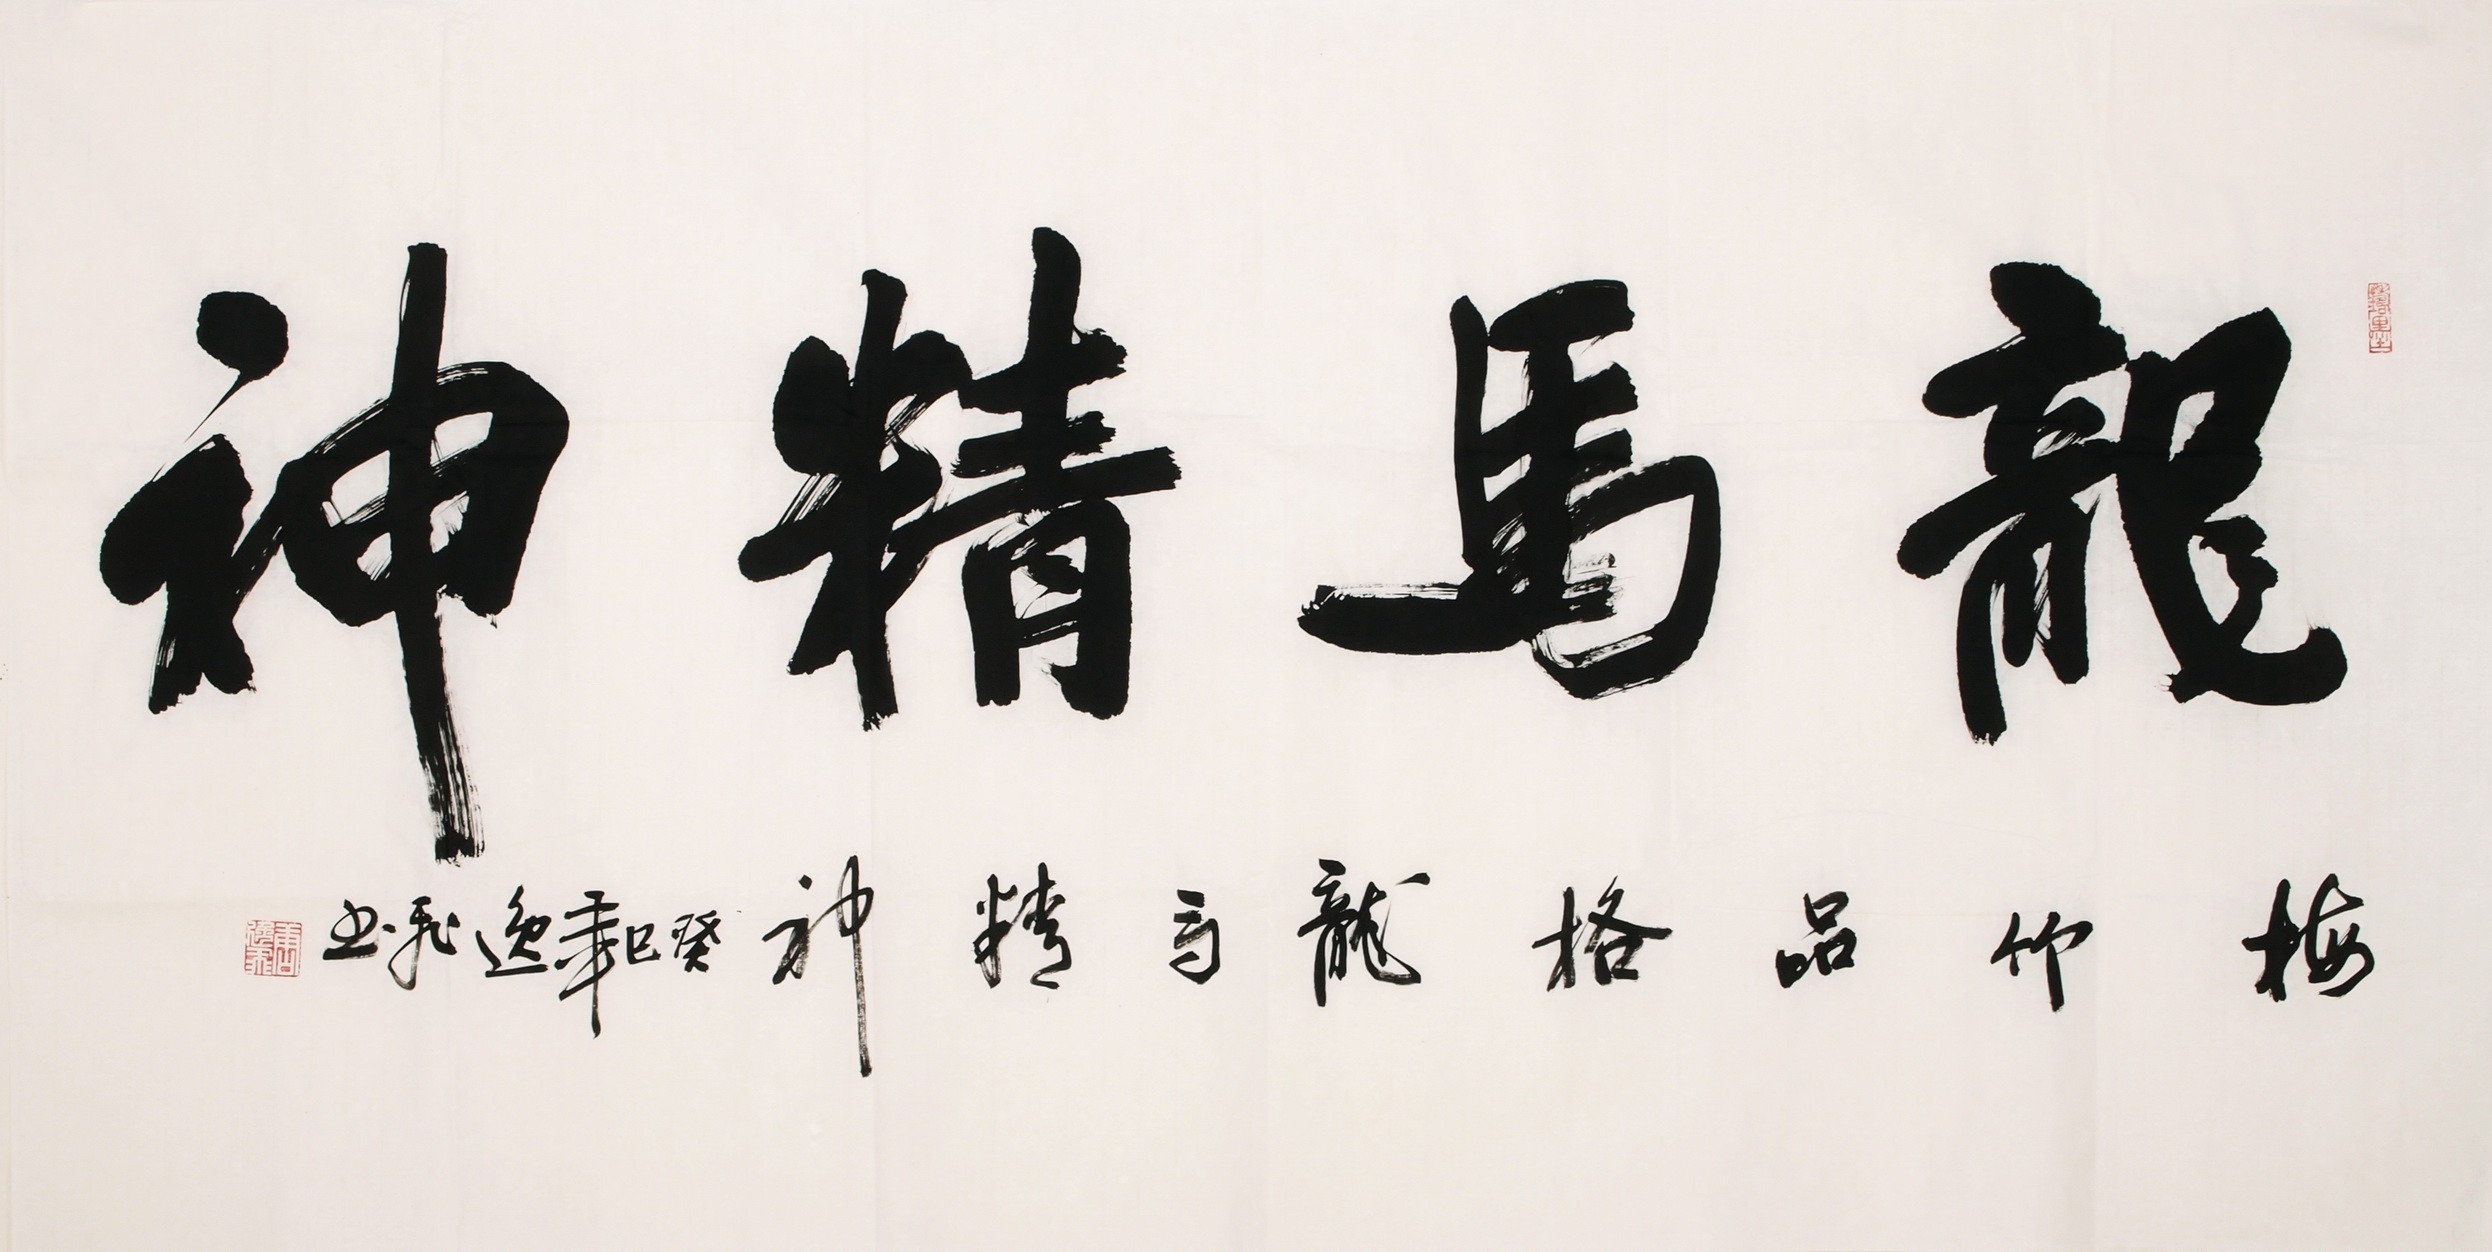 龍馬精神
梅竹品格龍馬精神癸巳年逸飛书